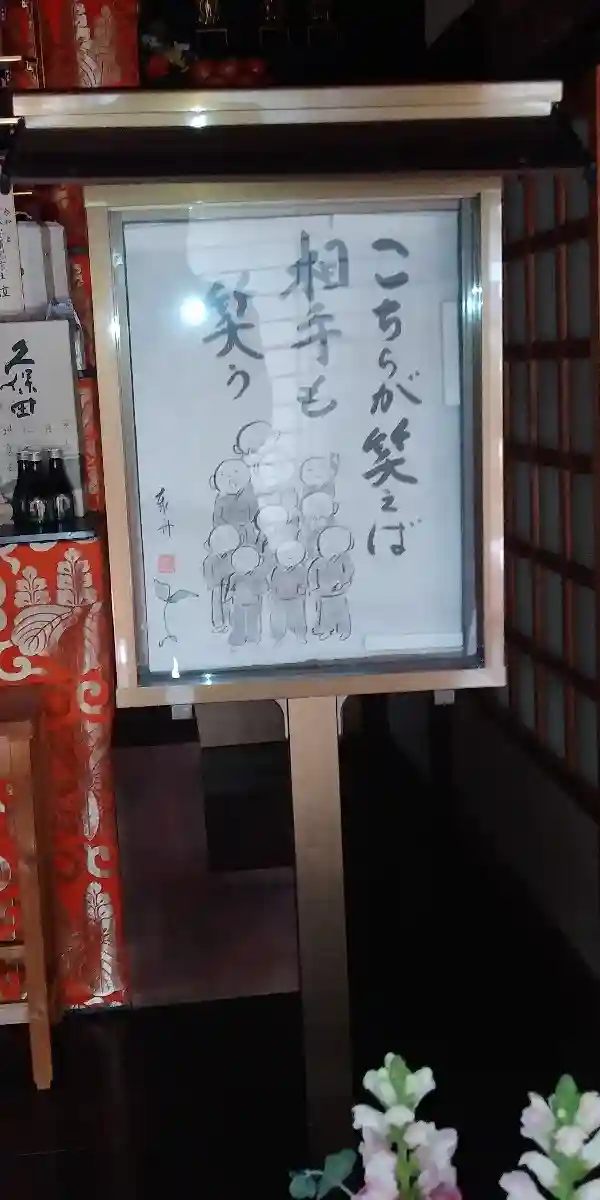 こちらが笑えば
相手も
笑う
久保田